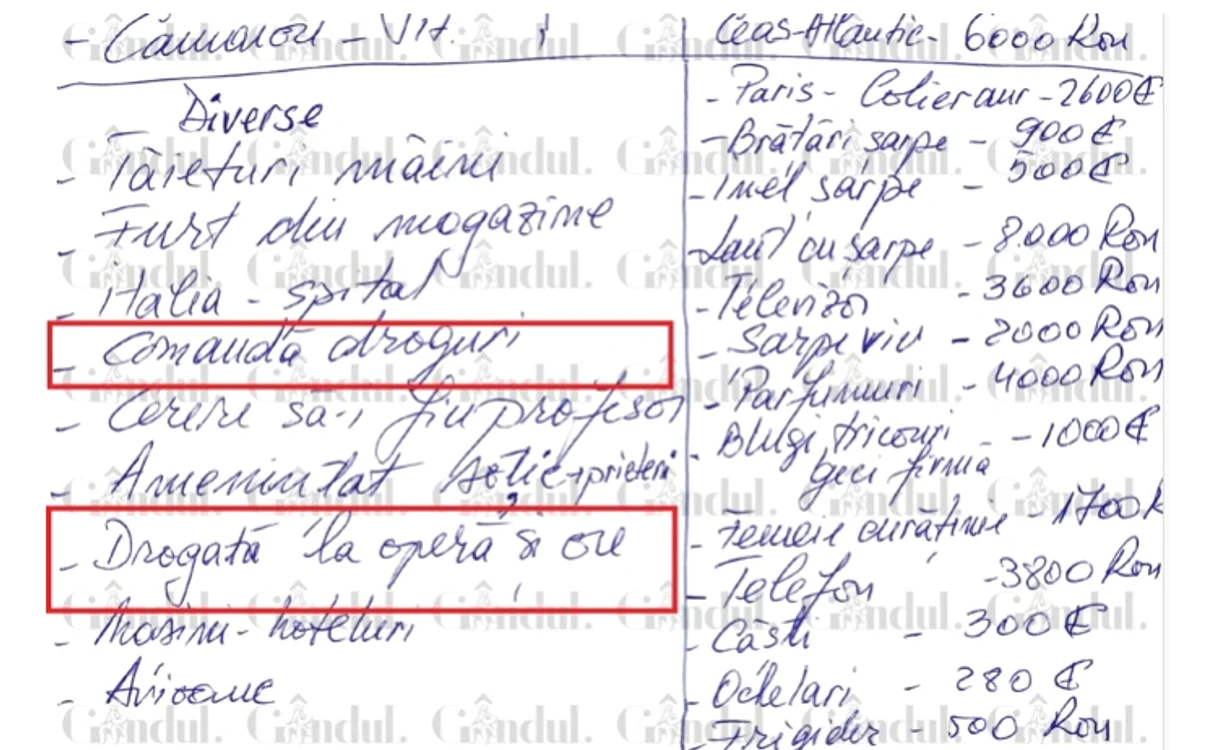 - Vit.
Diverse
- Tăieturi mâini
- Furt din magazine
- Italia - spital
- Comandă droguri
- Cerere să-i fiu profesor
- Amenintat soție+prieteni
- Drogată la operă și
- Masini - hoteluri
- Avioane
Ceas-Atlantic- 6000 Ron
- Paris - Colier aur - 2600€
- Brătări sarpe - 900 €
- Inel sarpe - 500€
- Lant cu sarpe - 8.000 Ron
- Televizor - 3600 Ron
- Sarpe viu - 2000 Ron
- Parfumuri - 4000 Ron
- Blugi, tricouri - - 1000€
geci firma
- Femeie curătinie - 1700
- Telefon - 3800 Ron
- Căsti - 300 €
- Ochelari - 280 €
- Frigider - 500 Ron
Gândul.